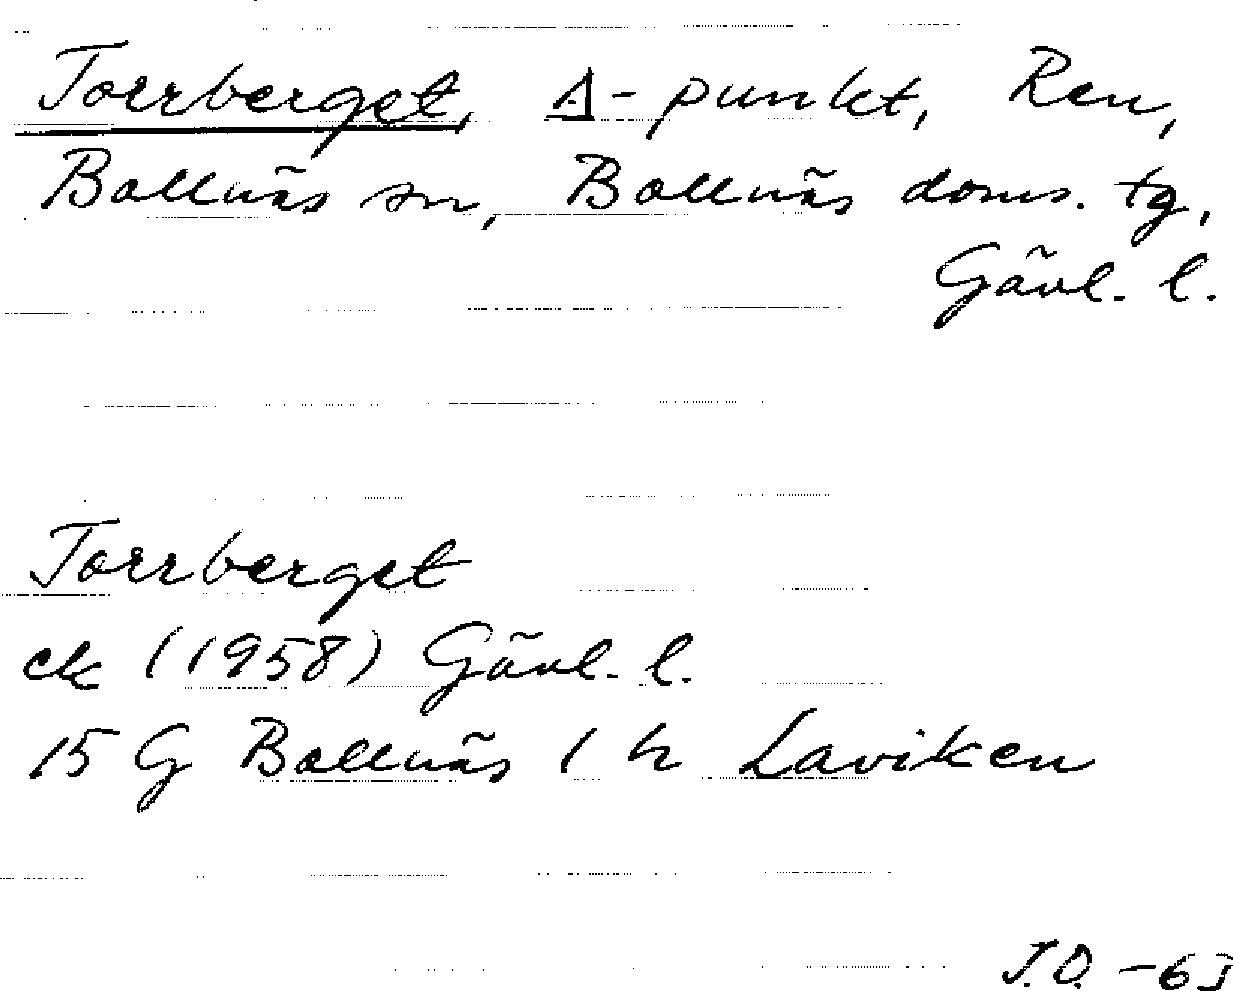 Torrberget, Δ-punkt, Ren,
Bollnäs sn, Bollnäs doms. tg,
Gävl. l.
Torrberget
ek (1958) Gävl. l.
15 G Bollnäs 1 h Laviken
J.O. -63